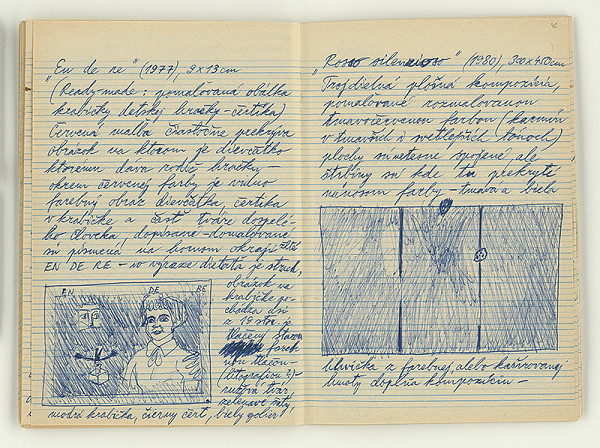 „En de re" (1977), 9x13cm
(Ready-made: pomaľovaná obálka
krabičky detskej hračky-čertíka)
červená maľba čiastočne prekrýva
obrázok na ktorom je dievčatko
ktorému dáva rodič hračky -
okrem červenej farby je vidno
farebný obraz dievčatka, čertíka
v krabičke a časť tváre dospelé-
ho človeka, dopísané-domaľované
sú písmená na hornom okraji
EN DE RE - vo výraze dieťaťa je strach,
obrázok na
krabičke po-
chádza
z 19 stor. je
tlačený starou
farebnou tlačou
(litografiou?) -
ružová tvár,
zelenavé šaty,
modrá krabička, čierny čert, biely golier
EN DE RE
42
„Rosso silenzioso" (1980), 300x450cm
Trojdielna plošná kompozícia,
pomaľované rozmalovanou
tmavočervenou farbou (karmín
v tmavších i svetlejších tónoch)
plochy sú tesne spojené, ale
štrbiny sú kde tu prekryté
nánosom farby - tmavá a biela
hlavička z farebnej, alebo
hmoty dopĺňa kompozíciu -